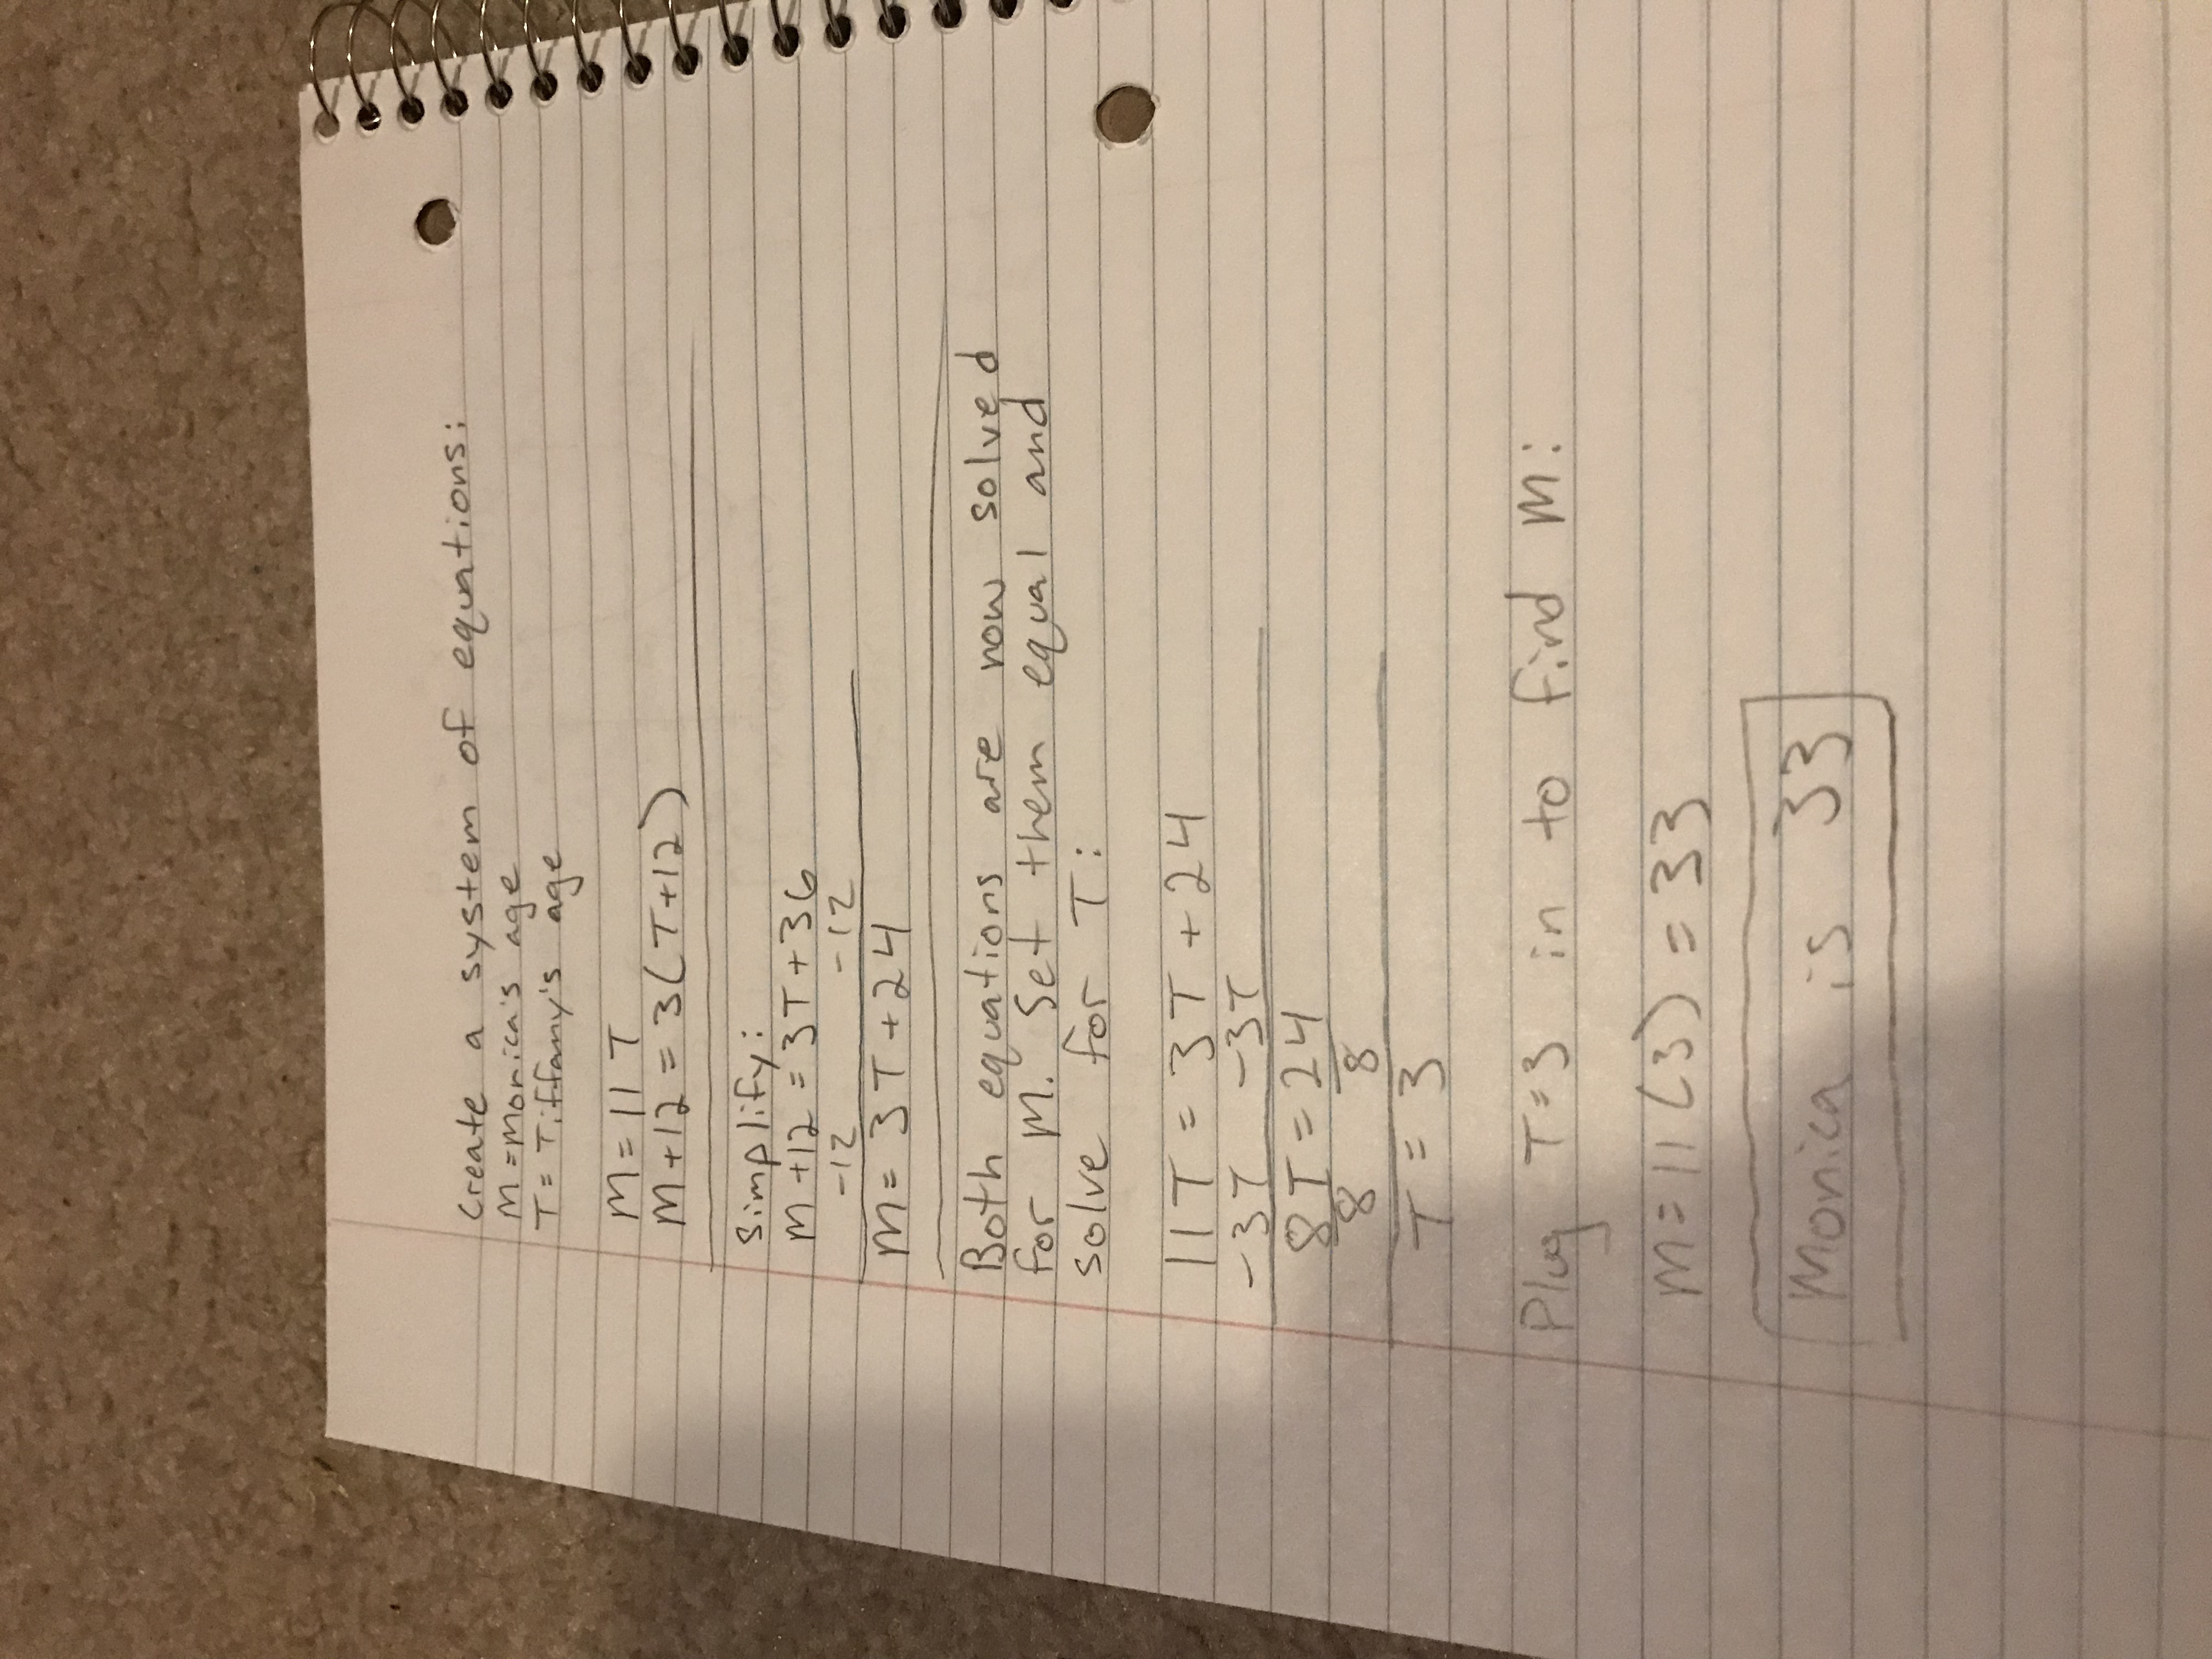 Create a system of equations:
M = Monica's age
T = Tiffany's age
M = 11T
M+12 = 3(T+12)
Simplify:
M+12 = 3T+36
-12 -12
M = 3T+24
Both equations are now solved
for M. Set them equal and
solve for T:
11T = 3T+24
-3T -3T
8T = 24
8 8
T = 3
Plug T=3 in to find M:
M = 11(3) = 33
Monica is 33